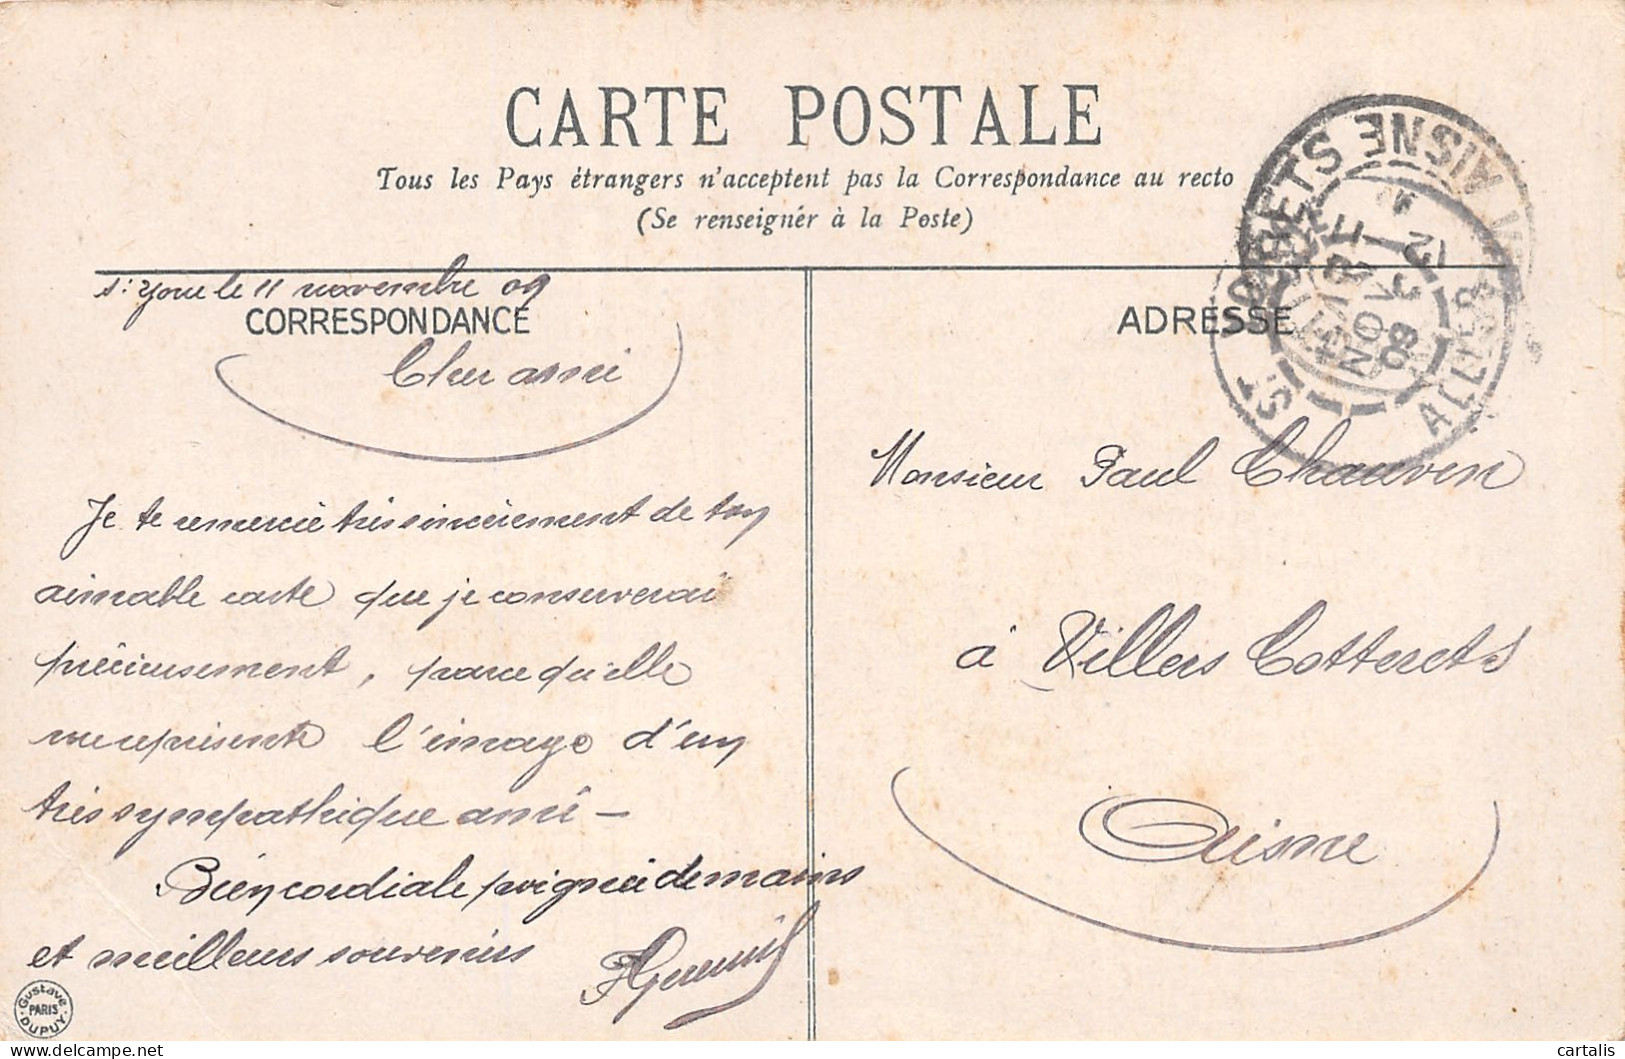 CARTE POSTALE
Tous les Pays étrangers n'acceptent pas la Correspondance au recto
(Se renseignér à la Poste)
St Yorre le 11 novembre 09
CORRESPONDANCE
Cher ami
Je te remercie très sincèrement de ton
aimable carte que je conserverai
précieusement, parce qu'elle
me représente l'image d'un
très sympathique ami —
Bien cordiale poignée de mains
et meilleurs souvenirs
ADRESSE
COTTERETS AISNE
NOV
09
ST
ALLIER
Monsieur Paul Chauvin
à Villers Cotterets
Aisne
Gustave
PARIS
DUPUY
cartalis